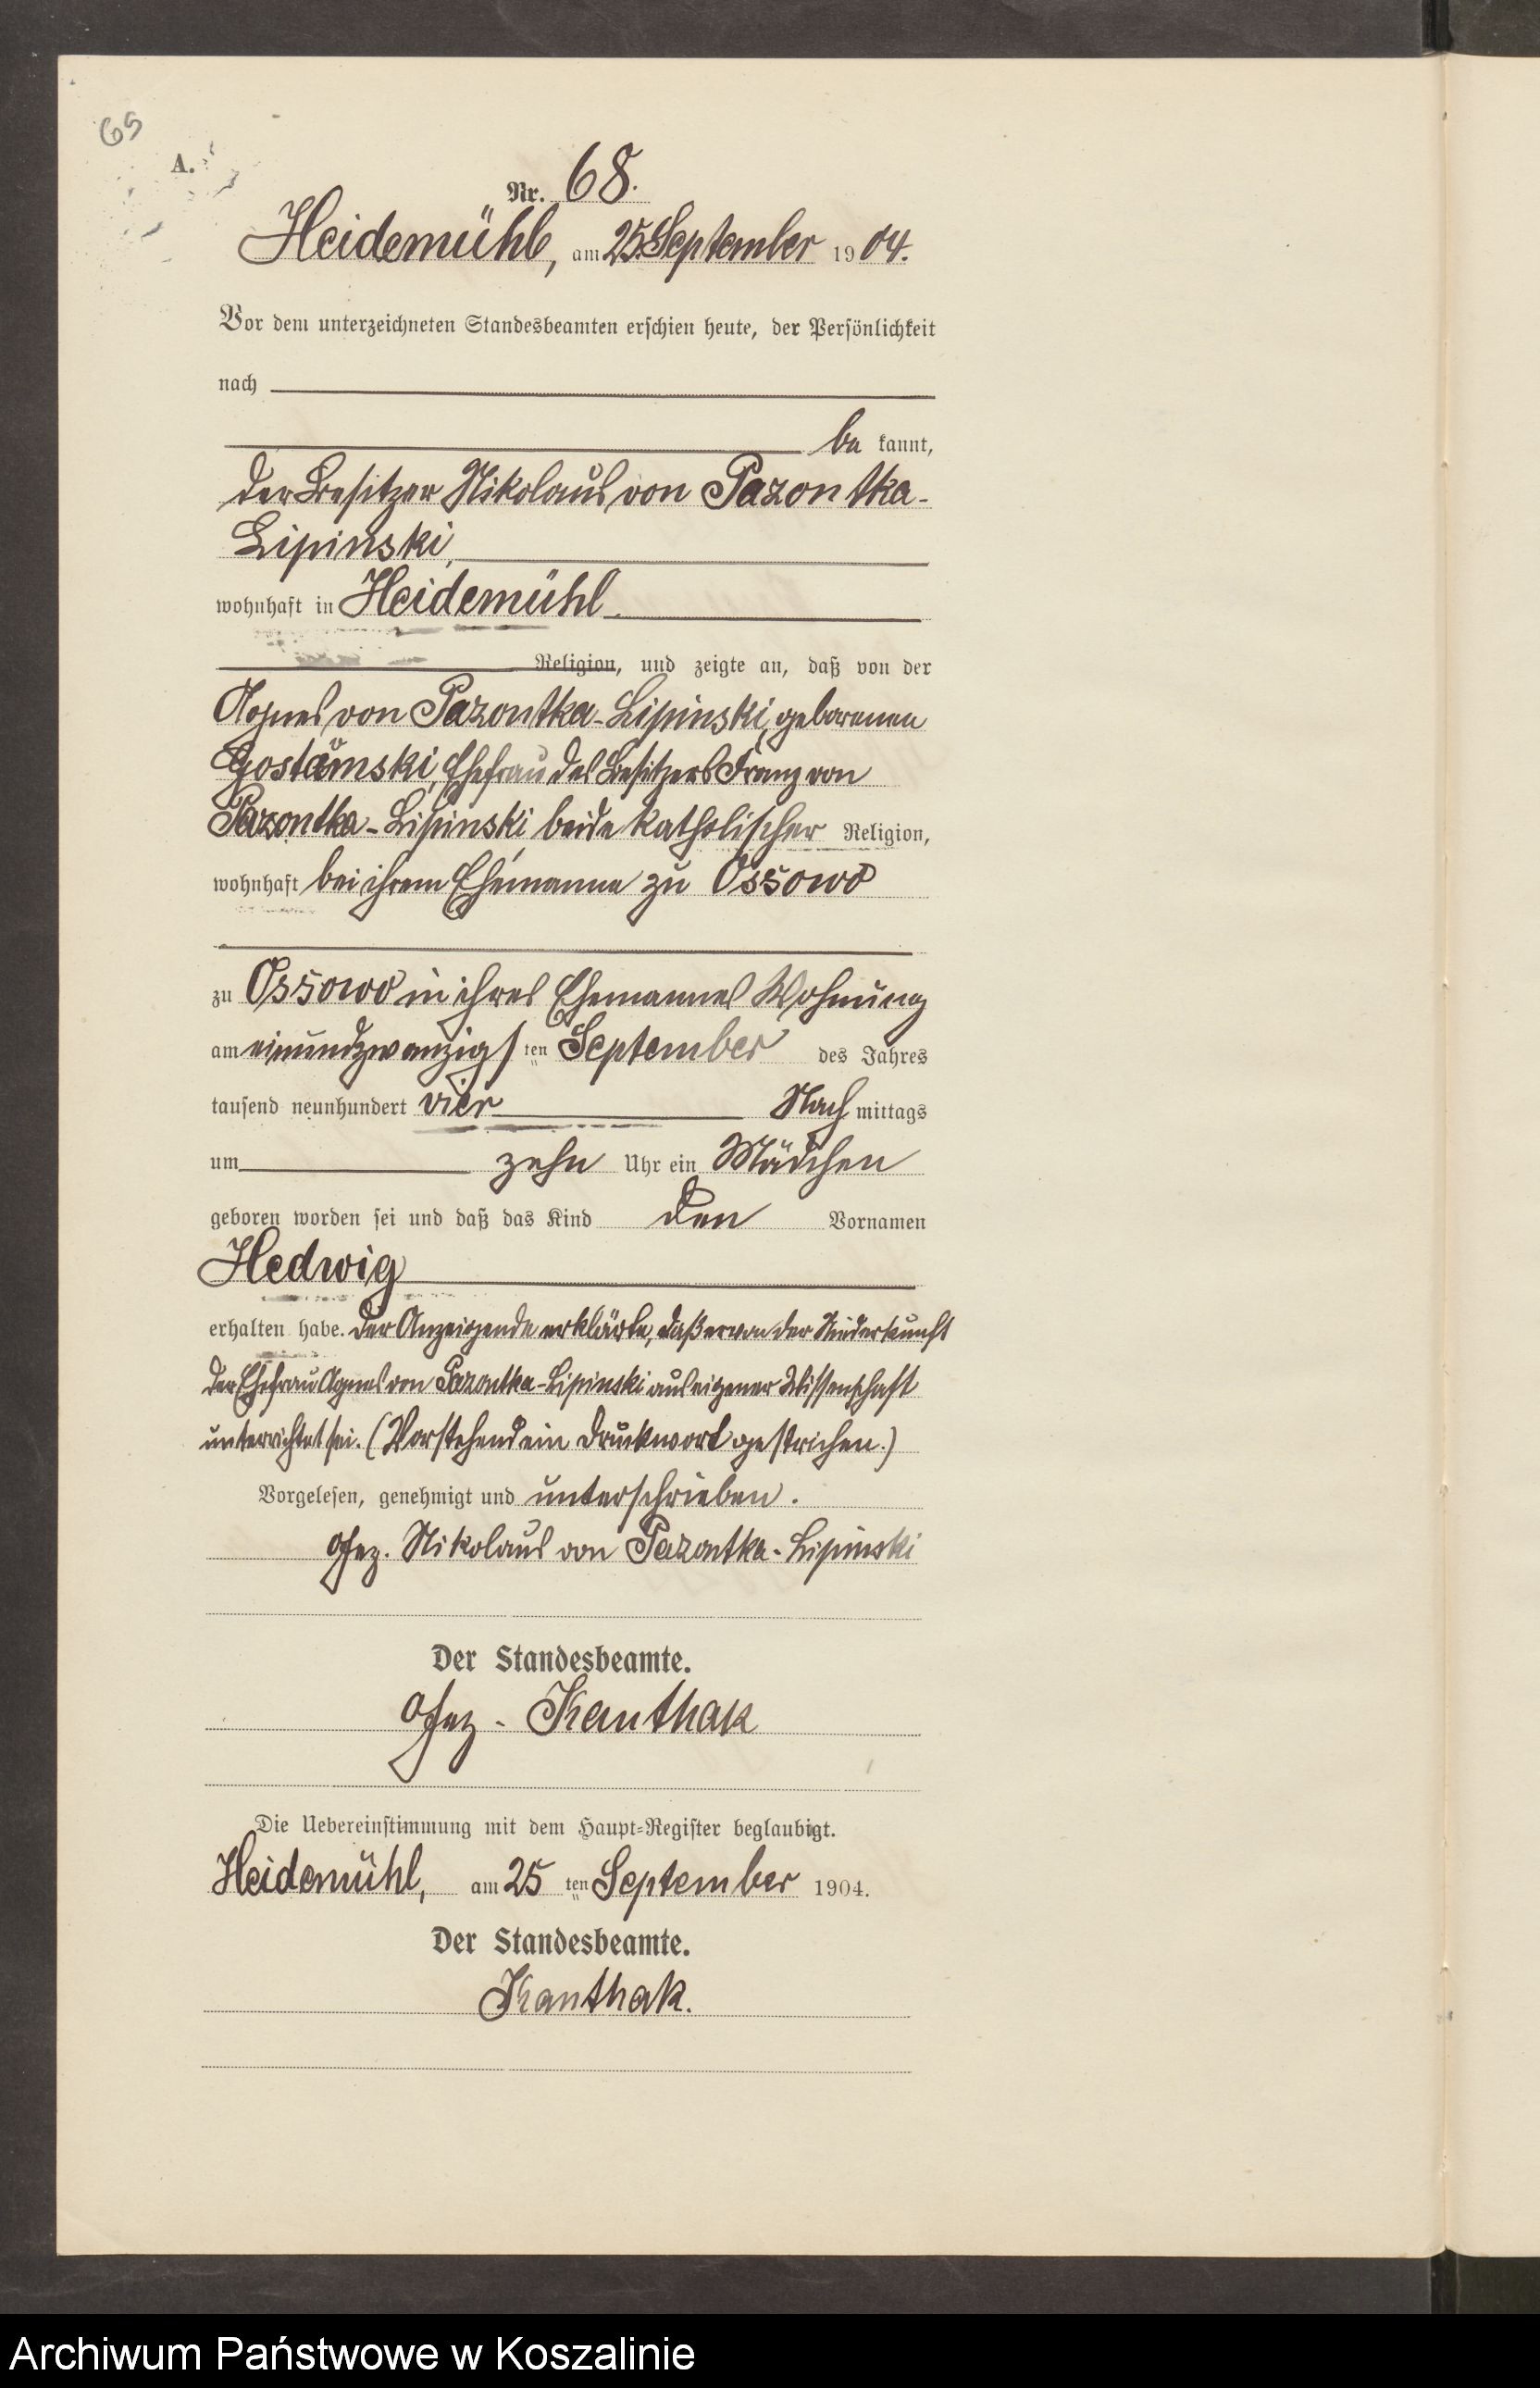 69
A.
Nr. 68.
Heidemühl, am 25. September 1904.
Vor dem unterzeichneten Standesbeamten erschien heute, der Persönlichkeit
nach
be kannt,
der Besitzer Nikolaus von Pazontka-
Lipinski,
wohnhaft in Heidemühl
Religion, und zeigte an, daß von der
Agnes von Pazontka-Lipinski, geborenen
Ehefrau des Besitzers Franz von
Pazontka-Lipinski, beide katholischer Religion,
wohnhaft bei ihrem Ehemanne zu Ossowo
zu Ossowo in ihres Ehemannes Wohnung
am einundzwanzigsten September des Jahres
tausend neunhundert vier Nach mittags
um zehn Uhr ein Mädchen
geboren worden sei und daß das Kind den Vornamen
Hedwig
erhalten habe. Der Anzeigende erklärte, daß er von der Niederkunft
der Ehefrau Agnes von Pazontka-Lipinski aus eigener Wissenschaft
unterrichtet sei. (Vorstehend ein Druckwort gestrichen.)
Vorgelesen, genehmigt und unterschrieben.
Gez. Nikolaus von Pazontka-Lipinski
Der Standesbeamte.
Gez. Kanthak
Die Uebereinstimmung mit dem Haupt-Register beglaubigt.
Heidemühl, am 25 ten September 1904.
Der Standesbeamte.
Kanthak.
Archiwum Państwowe w Koszalinie